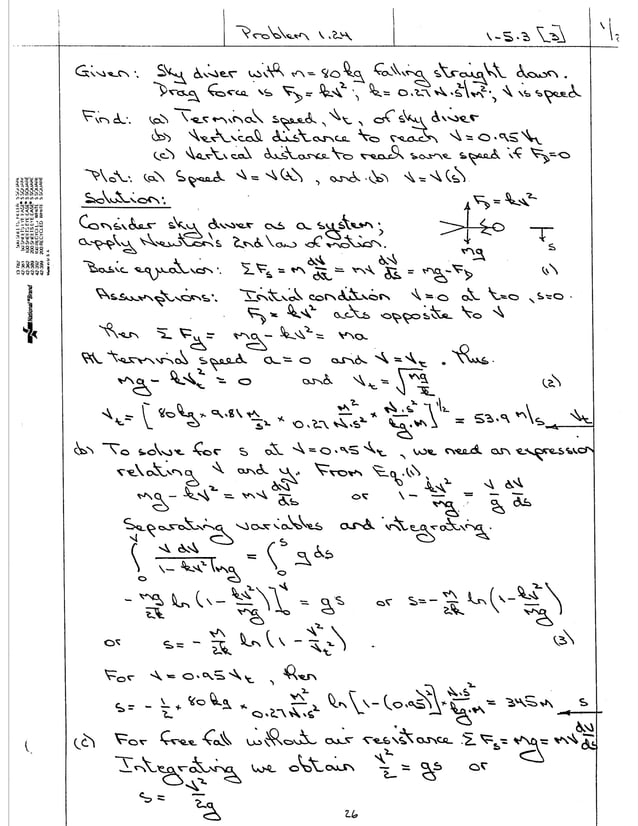 Problem 1.24
1-5.3 [3]
1/2
Given: Sky diver with m = 80 kg falling straight down.
Drag force is F_D = kV²; k = 0.27 N·s²/m²; V is speed
Find: (a) Terminal speed, V_t, of sky diver
(b) Vertical distance to reach V = 0.95 V_t
(c) Vertical distance to reach same speed if F_D = 0
Plot: (a) Speed V = V(t), and (b) V = V(s).
Solution:
Consider sky diver as a system;
apply Newton's 2nd law of motion.
F_D = kV²
mg
s
Basic equation: ΣF_s = m dV/dt = mV dV/ds = mg - F_D (1)
Assumptions: Initial condition V = 0 at t = 0, s = 0.
F_D = kV² acts opposite to V
Then ΣF_y = mg - kV² = ma
At terminal speed a = 0 and V = V_t. Thus.
mg - kV_t² = 0 and V_t = √(mg/k) (2)
V_t = [80 kg × 9.81 m/s² × m²/0.27 N·s² × N·s²/kg·m]^1/2 = 53.9 m/s V_t
(b) To solve for s at V = 0.95 V_t, we need an expression
relating V and y. From Eq. (1)
mg - kV² = mV dV/ds or 1 - kV²/mg = V/g dV/ds
Separating variables and integrating.
∫₀^V V dV / (1 - kV²/mg) = ∫₀^s g ds
- mg/2k ln (1 - kV²/mg)]₀^V = gs or s = - m/2k ln (1 - kV²/mg)
or s = - m/2k ln (1 - V²/V_t²). (3)
For V = 0.95 V_t, then
s = - 1/2 × 80 kg × m²/0.27 N·s² ln [1 - (0.95)²] × N·s²/kg·m = 345 m s
(c) For free fall without air resistance ΣF_s = mg = mV dV/ds
Integrating we obtain V²/2 = gs or
s = V²/2g
26
National Brand